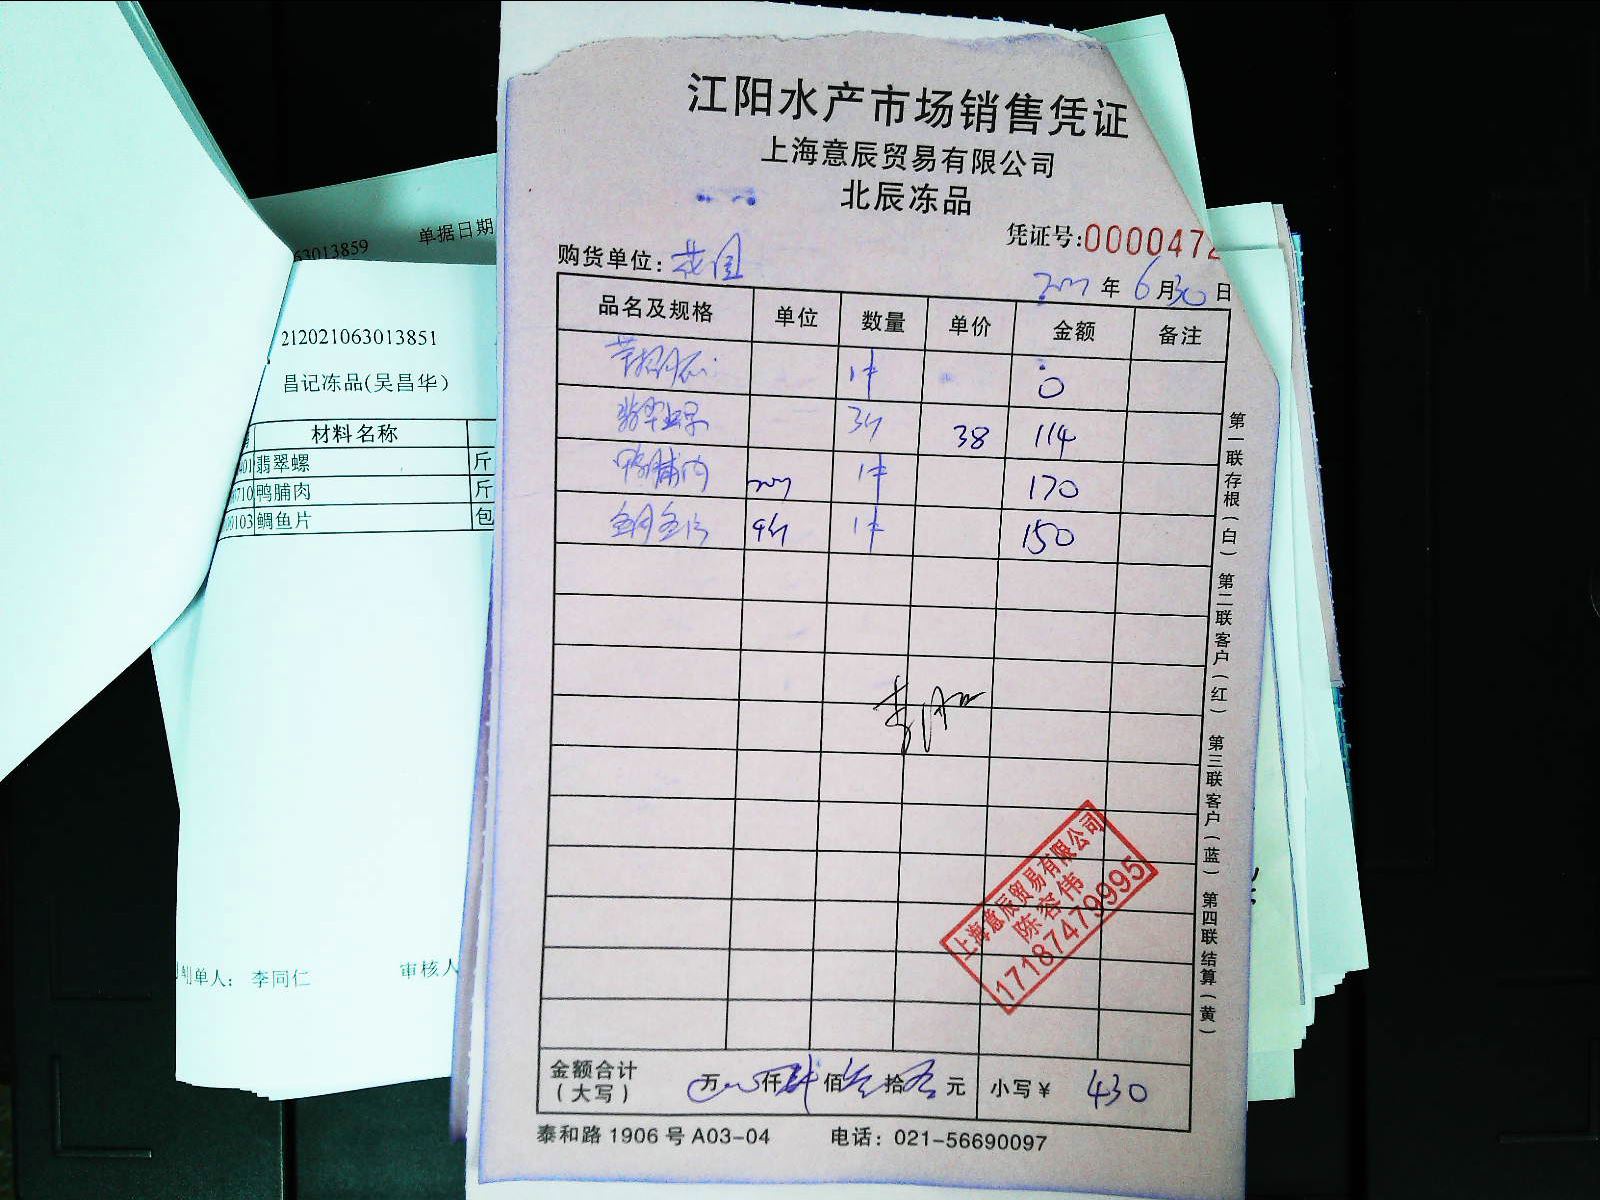 江阳水产市场销售凭证
上海意辰贸易有限公司
北辰冻品
凭证号:0000472
购货单位: 花园
年 6 月 30 日
品名及规格 单位 数量 单价 金额 备注
1件 0
翡翠螺 3斤 38 114
鸭脯肉 1件 170
鲷鱼片 1件 150
金额合计
(大写) 万 仟 佰 叁 拾 元 小写¥ 430
泰和路1906号A03-04 电话: 021-56690097
第一联存根(白) 第二联客户(红) 第三联客户(蓝) 第四联结算(黄)
上海意辰贸易有限公司
陈容伟
17187479995
63013859 单据日期
212021063013851
昌记冻品(吴昌华)
材料名称
401 翡翠螺 斤
710 鸭脯肉 斤
103 鲷鱼片 包
制单人: 李同仁 审核人